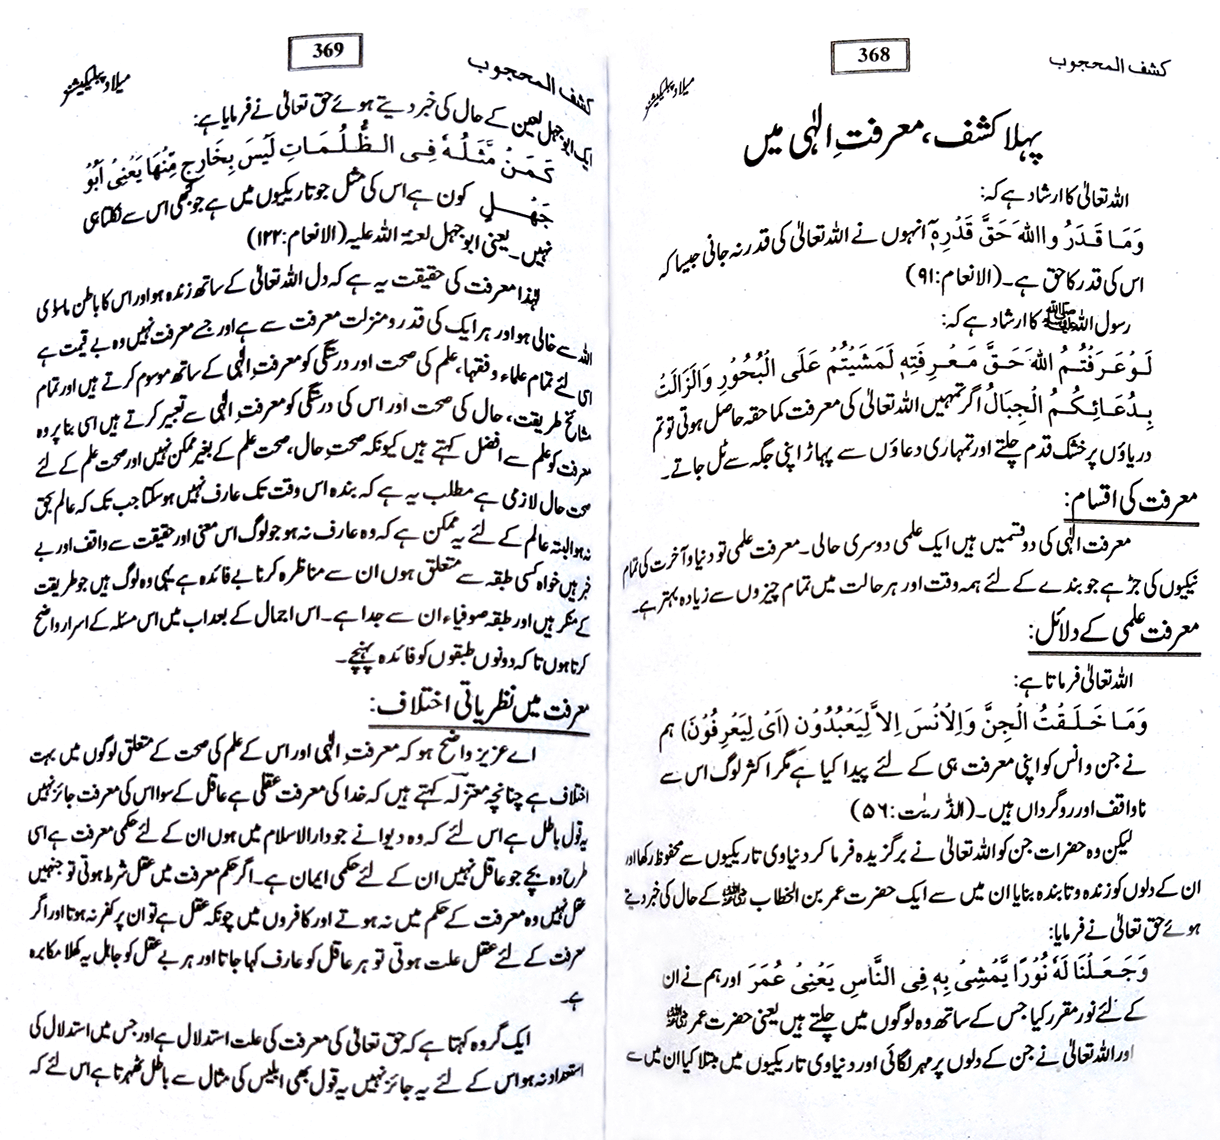 کشف المحجوب
368
میلاد پبلیکیشنز
پہلا کشف، معرفتِ الٰہی میں
اللہ تعالیٰ کا ارشاد ہے کہ:
وَمَا قَدَرُ وااللہَ حَقَّ قَدْرِہٖٓ انہوں نے اللہ تعالیٰ کی قدر نہ جانی جیسا کہ
اس کی قدر کا حق ہے۔ (الانعام:۹۱)
رسول اللہ ﷺ کا ارشاد ہے کہ:
لَوْعَرَفْتُمُ اللہَ حَقَّ مَعْرِفَتِہٖ لَمَشَیْتُمْ عَلَی الْبُحُوْرِ وَالَزَالَتْ
بِدُعَائِکُمُ الْجِبَالُ اگر تمہیں اللہ تعالیٰ کی معرفت کما حقہ حاصل ہوتی تو تم
دریاؤں پر خشک قدم چلتے اور تمہاری دعاؤں سے پہاڑ اپنی جگہ سے ٹل جاتے۔
معرفت کی اقسام:
معرفت الٰہی کی دو قسمیں ہیں ایک علمی دوسری حالی۔ معرفت علمی تو دنیا و آخرت کی تمام
نیکیوں کی جڑ ہے جو بندے کے لئے ہمہ وقت اور ہر حالت میں تمام چیزوں سے زیادہ بہتر ہے۔
معرفت علمی کے دلائل:
اللہ تعالیٰ فرماتا ہے:
وَمَا خَلَقْتُ الْجِنَّ وَالْاِنْسَ اِلاَّ لِیَعْبُدُوْنِ (اَیْ لِیَعْرِفُوْنَ) ہم
نے جن و انس کو اپنی معرفت ہی کے لئے پیدا کیا ہے مگر اکثر لوگ اس سے
ناواقف اور روگرداں ہیں۔ (الذّٰریٰت:۵۶)
لیکن وہ حضرات جن کو اللہ تعالیٰ نے برگزیدہ فرما کر دنیاوی تاریکیوں سے محفوظ رکھا اور
ان کے دلوں کو زندہ و تابندہ بنایا ان میں سے ایک حضرت عمر بن الخطاب رضی اللہ عنہ کے حال کی خبر دیتے
ہوئے حق تعالیٰ نے فرمایا:
وَجَعَلْنَا لَہٗ نُوْرًا یَّمْشِیْ بِہٖ فِی النَّاسِ یَعْنِیْ عُمَرَ اور ہم نے ان
کے لئے نور مقرر کیا جس کے ساتھ وہ لوگوں میں چلتے ہیں یعنی حضرت عمر رضی اللہ عنہ
اور اللہ تعالیٰ نے جن کے دلوں پر مہر لگائی اور دنیاوی تاریکیوں میں مبتلا کیا ان میں سے
کشف المحجوب
369
میلاد پبلیکیشنز
ایک ابو جہل لعین کے حال کی خبر دیتے ہوئے حق تعالیٰ نے فرمایا ہے:
کَمَنْ مَّثَلُہٗ فِی الظُّلُمَاتِ لَیْسَ بِخَارِجٍ مِّنْھَا یَعْنِیْ اَبُوْ
جَھْلٍ کون ہے اس کی مثل جو تاریکیوں میں ہے جو کبھی اس سے نکلتا ہی
نہیں۔ یعنی ابوجہل لعنۃ اللہ علیہ (الانعام:۱۲۲)
لہٰذا معرفت کی حقیقت یہ ہے کہ دل اللہ تعالیٰ کے ساتھ زندہ ہو اور اس کا باطن ماسوٰی
اللہ سے خالی ہو اور ہر ایک کی قدر و منزلت معرفت سے ہے اور جسے معرفت نہیں وہ بے قیمت ہے
اسی لئے تمام علماء و فقہا، علم کی صحت اور درستگی کو معرفتِ الٰہی کے ساتھ موسوم کرتے ہیں اور تمام
مشائخ طریقت، حال کی صحت اور اس کی درستگی کو معرفتِ الٰہی سے تعبیر کرتے ہیں اسی بنا پر وہ
معرفت کو علم سے افضل کہتے ہیں کیونکہ صحتِ حال، صحت علم کے بغیر ممکن نہیں اور صحت علم کے لئے
صحت حال لازمی ہے مطلب یہ ہے کہ بندہ اس وقت تک عارف نہیں ہوسکتا جب تک کہ عالم بحق
نہ ہو البتہ عالم کے لئے یہ ممکن ہے کہ وہ عارف نہ ہو جو لوگ اس معنی اور حقیقت سے واقف اور بے
خبر ہیں خواہ کسی طبقہ سے متعلق ہوں ان سے مناظرہ کرنا بے فائدہ ہے یہی وہ لوگ ہیں جو طریقت
کے منکر ہیں اور طبقہ صوفیاء ان سے جدا ہے۔ اس اجمال کے بعد اب میں اس مسئلہ کے اسرار واضح
کرتا ہوں تا کہ دونوں طبقوں کو فائدہ پہنچے۔
معرفت میں نظریاتی اختلاف:
اے عزیز واضح ہو کہ معرفتِ الٰہی اور اس کے علم کی صحت کے متعلق لوگوں میں بہت
اختلاف ہے چنانچہ معتزلہ کہتے ہیں کہ خدا کی معرفت عقلی ہے عاقل کے سوا اس کی معرفت جائز نہیں
یہ قول باطل ہے اس لئے کہ وہ دیوانے جو دارالاسلام میں ہوں ان کے لئے حکمی معرفت ہے اسی
طرح وہ بچے جو عاقل نہیں ان کے لئے حکمی ایمان ہے۔ اگر حکم معرفت میں عقل شرط ہوتی تو جنہیں
عقل نہیں وہ معرفت کے حکم میں نہ ہوتے اور کافروں میں چونکہ عقل ہے تو ان پر کفر نہ ہوتا اور اگر
معرفت کے لئے عقل علت ہوتی تو ہر عاقل کو عارف کہا جاتا اور ہر بے عقل کو جاہل یہ کھلا مکابرہ
ہے۔
ایک گروہ کہتا ہے کہ حق تعالیٰ کی معرفت کی علت استدلال ہے اور جس میں استدلال کی
استعداد نہ ہو اس کے لئے یہ جائز نہیں یہ قول بھی ابلیس کی مثال سے باطل ٹھہرتا ہے اس لئے کہ